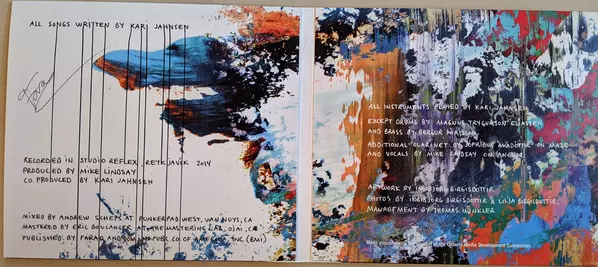 ALL SONGS WRITTEN BY KARI JAHNSEN
Farao
RECORDED IN STUDIO REFLEX, REYKJAVIK 2014
PRODUCED BY MIKE LINDSAY
CO PRODUCED BY KARI JAHNSEN
MIXED BY ANDREW SCHEPS AT PUNKERPAD WEST, VAN NUYS, CA
MASTERED BY ERIC BOULANGER AT THE MASTERING LAB, OJAI, CA
PUBLISHED BY FARAO AND DOMINO PUBL. CO OF AMERICA, INC (BMI)
ALL INSTRUMENTS PLAYED BY KARI JAHNSEN
EXCEPT DRUMS BY MAGNUS TRYGVASON ELIASSEN
AND BRASS BY BERGUR ÞORISSON
ADDITIONAL CLARINET BY ON MAZE
AND VOCALS BY MIKE LINDSAY ON ANCHOR
ARTWORK BY INGIBJÖRG BIRGISDÓTTIR
PHOTOS BY INGIBJÖRG BIRGISDÓTTIR & LILJA BIRGISDÓTTIR
MANAGEMENT BY THOMAS WINKLER
Made of the Ontario Media Development Corporation.